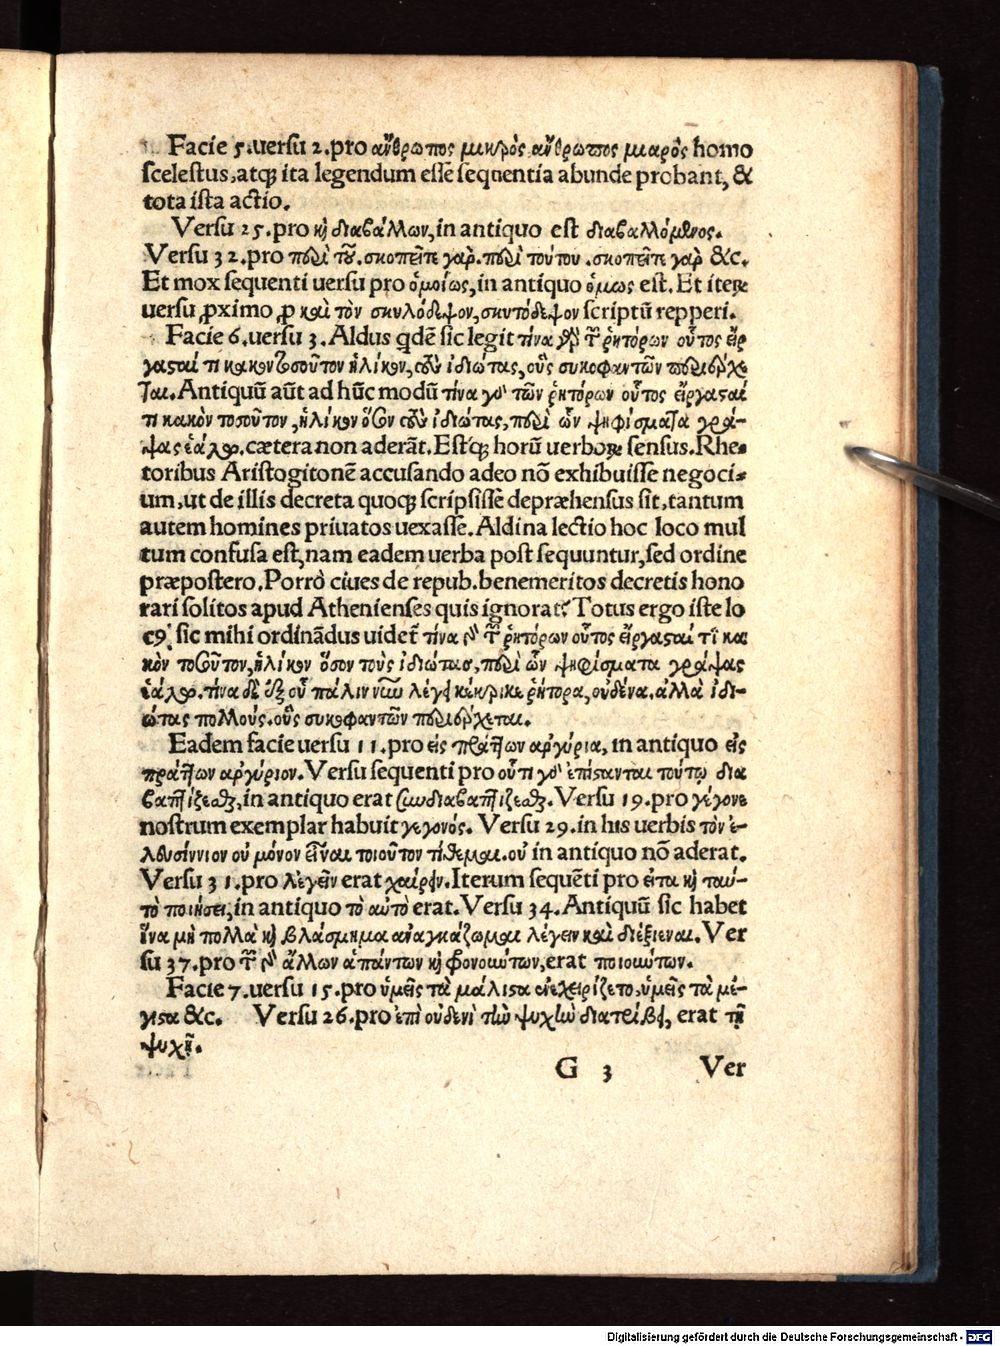 Facie 5. uersu 2. pro ἄνθρωπος μικρὸς ἄνθρωπος μιαρὸς homo
scelestus, atq; ita legendum esse sequentia abunde probant, &
tota ista actio.
Versu 25. pro κ̀ διαβάλλων, in antiquo est διαβαλλόμενος.
Versu 32. pro περὶ τοῦ. σκοπεῖτε γὰρ. περὶ τούτου. σκοπεῖτε γὰρ &c.
Et mox sequenti uersu pro ὁμοίως, in antiquo ὅμως est. Et iterꝝ
uersu ꝓximo ꝓ καὶ τὸν σκυλόδεψον, σκυτόδεψον scriptū repperi.
Facie 6. uersu 3. Aldus qdē sic legit τίνα γὰρ τῶν ῥητόρων οὗτος εἴρ
γασαί τι κακὸν τοσοῦτον ἡλίκον, τοὺς ἰδιώτας, οὓς συκοφαντῶν περιέρχε
ται. Antiquū aūt ad hūc modū τίνα γὰρ τῶν ῥητόρων οὗτος εἴργασαί
τι κακὸν τοσοῦτον, ἡλίκον ὅσον τοὺς ἰδιώτας, περὶ ὧν ψηφίσματα γρά-
ψας ἑάλω. cætera non aderāt. Est q; horū uerboꝝ sensus. Rhe-
toribus Aristogitonē accusando adeo nō exhibuisse negoci-
um, ut de illis decreta quoq; scripsisse depræhensus sit, tantum
autem homines priuatos uexasse. Aldina lectio hoc loco mul
tum confusa est, nam eadem uerba post sequuntur, sed ordine
præpostero. Porrò ciues de repub. benemeritos decretis hono
rari solitos apud Athenienses quis ignorat? Totus ergo iste lo
cꝰ, sic mihi ordinādus uidet̄ τίνα γὰρ τῶν ῥητόρων οὗτος εἴργασαί τι κα
κὸν τοσοῦτον, ἡλίκον ὅσον τοὺς ἰδιώτας, περὶ ὧν ψηφίσματα γράψας
ἑάλω. τίνα δὲ ἐξ οὗ πάλιν νῦν λέγει κέκρικε ῥήτορα, οὐδένα. ἀλλὰ ἰδι-
ώτας πολλούς. οὓς συκοφαντῶν περιέρχεται.
Eadem facie uersu 11. pro εἰς πράττων ἀργύρια, in antiquo εἰς
πράττων ἀργύριον. Versu sequenti pro οὔτι γὰρ ἐπίσταται τούτῳ δια
βαπτίζεσθαι, in antiquo erat συνδιαβαπτίζεσθαι. Versu 19. pro γέγονε
nostrum exemplar habuit γεγονός. Versu 29. in his uerbis τὸν ἐ-
λευσίνιον οὐ μόνον εἶναι τοιοῦτον τίθεμαι. οὐ in antiquo nō aderat.
Versu 31. pro λέγειν erat χαίρειν. Iterum sequēti pro εἶτα κ̀ ταὐ-
τὸ ποιήσει, in antiquo τὸ αὐτὸ erat. Versu 34. Antiquū sic habet
ἵνα μὴ πολλὰ κ̀ βλάσφημα ἀναγκάζωμαι λέγειν καὶ διεξιέναι. Ver
su 37. pro τῶν γὰρ ἄλλων ἁπάντων κ̀ φρονούντων, erat ποιούντων.
Facie 7. uersu 15. pro ὑμεῖς τὰ μάλιστα ἐνεχειρίζετο, ὑμεῖς τὰ μέ-
γιστα &c. Versu 26. pro ἐπὶ οὐδενὶ τὴν ψυχὴν διατρίβει, erat τῇ
ψυχῇ.
G 3 Ver
Digitalisierung gefördert durch die Deutsche Forschungsgemeinschaft - DFG